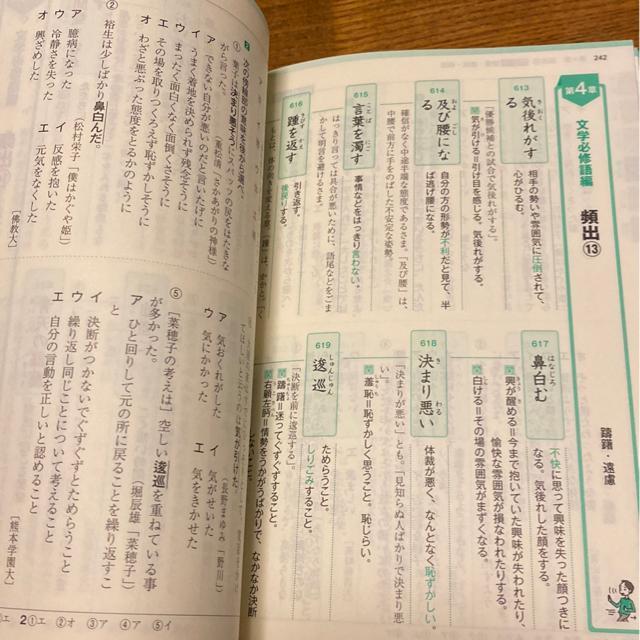 242
第4章
文学必修語編
頻出⑬
躊躇・遠慮
613
気後れがする
相手の勢いや雰囲気に圧倒されて、
心がひるむ。
「優勝候補との試合で気後れがする」。
関 気が引ける＝引け目を感じる。気後れがする。
614
及び腰になる
自分の方の形勢が不利だと見て、半
ば逃げ腰になる。
確信がなく中途半端な態度であるさま。「及び腰」は、
中腰で前方に手をのばした不安定な姿勢。
615
言葉を濁す
事情などをはっきり言わない。
はっきり言っては具合が悪いために、語尾などをごま
かして明言を避けるさま。
616
踵を返す
引き返す。
後戻りする。
617
鼻白む
不快に思って興味を失った顔つきに
なる。気後れした顔をする。
関 興が醒める＝今まで抱いていた興味が失われたり、
愉快な雰囲気が損なわれたりする。
関 白ける＝その場の雰囲気がまずくなる。
618
決まり悪い
体裁が悪く、なんとなく恥ずかしい。
「決まりが悪い」とも。「見知らぬ人ばかりで決まり悪
い」。
関 羞恥＝恥ずかしく思うこと。恥じらい。
619
逡巡
ためらうこと。
しりごみすること。
「決断を前に逡巡する」。
関 躊躇＝迷ってぐずぐずすること。
関 右顧左眄＝情勢をうかがうばかりで、なかなか決断
しないこと。
2 次の傍線部の意味を後から選べ。
① 葉子は決まり悪そうにスパッツの尻をはたきな
がら言った。（重松清「さかあがりの神様」）
ア できない自分が悪いのだと言いたげに
イ うまく着地を決められず残念そうに
ウ まったく面白くなく面倒くさそうに
エ その場を取りつくろえず恥ずかしそうに
オ わざと悪ぶった態度をとるかのように
② 裕生は少しばかり鼻白んだ。
（松村栄子「僕はかぐや姫」）
ア 臆病になった
イ 反感を抱いた
ウ 冷静さを失った
エ 元気をなくした
オ 興ざめした
［佛教大］
気が引けた。
（長野まゆみ「野川」）
ア 気おくれがした
イ 気がせいた
ウ 気にかかった
エ 気をきかせた
⑤ ［菜穂子の考えは］空しい逡巡を重ねている事
が多かった。
（堀辰雄「菜穂子」）
ア ひと回りして元の所に戻ることを繰り返すこ
と
イ 決断がつかないでぐずぐずとためらうこと
ウ 繰り返し同じことについて考えること
エ 自分の言動を正しいと認めること
［熊本学園大］
2①エ ②オ ③ア ④ア ⑤イ